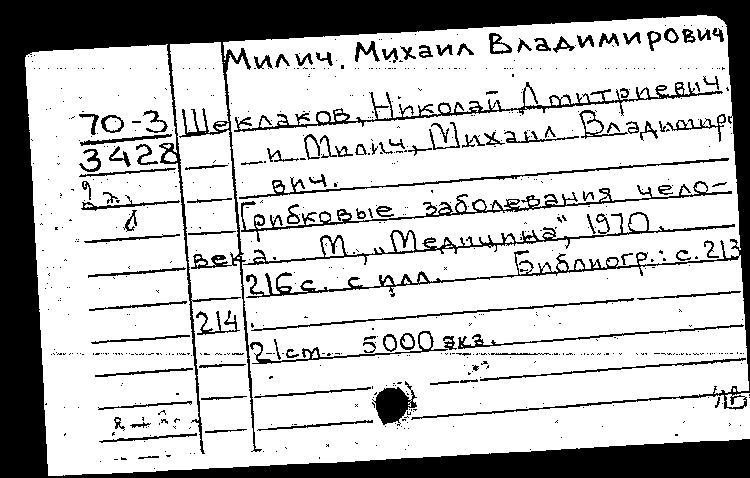 Милич, Михаил Владимирович
70-3 Шеклаков, Николай Дмитриевич.
3428 и Милич, Михаил Владимиро
вич.
Грибковые заболевания чело-
века. М., "Медицина", 1970.
216 с. с илл. Библиогр.: с. 213
214.
21 cm. 5000 экз.